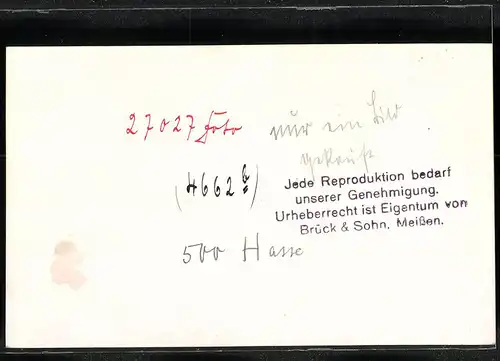 27027 Foto nur ein Bild
gekauft
(4662 b)
Jede Reproduktion bedarf
unserer Genehmigung.
Urheberrecht ist Eigentum von
Brück & Sohn, Meißen.
500 Hasse